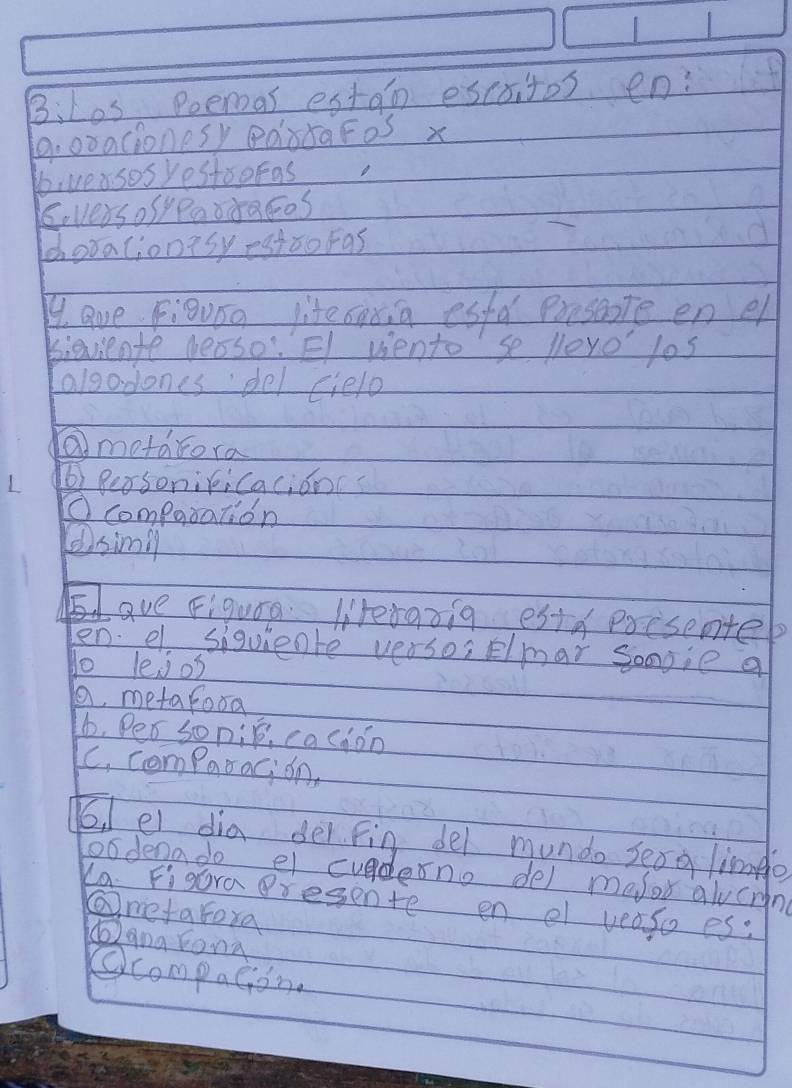 3. Los Poemas están escritos en:
a. oraciones y párrafos x
b. versos y estrofas
c. versos y parrafos
d. oraciones y estrofas
4. Que Figura literaria está presente en el
siguiente verso: El viento se llevó los
algodones del cielo
a) metáfora
b) Personificación
c) comparación
d) simil
5. Que Figura literaria está presente
en el siguiente verso: El mar sonrie a
lo lejos
a. metafora
b. Personificación
c. comparación.
6. el dia del fin del mundo sera limpio
ordenado el cuaderno del mejor alumno
La Figura Presente en el verso es:
a) metafora
b) anafona
c) compación.